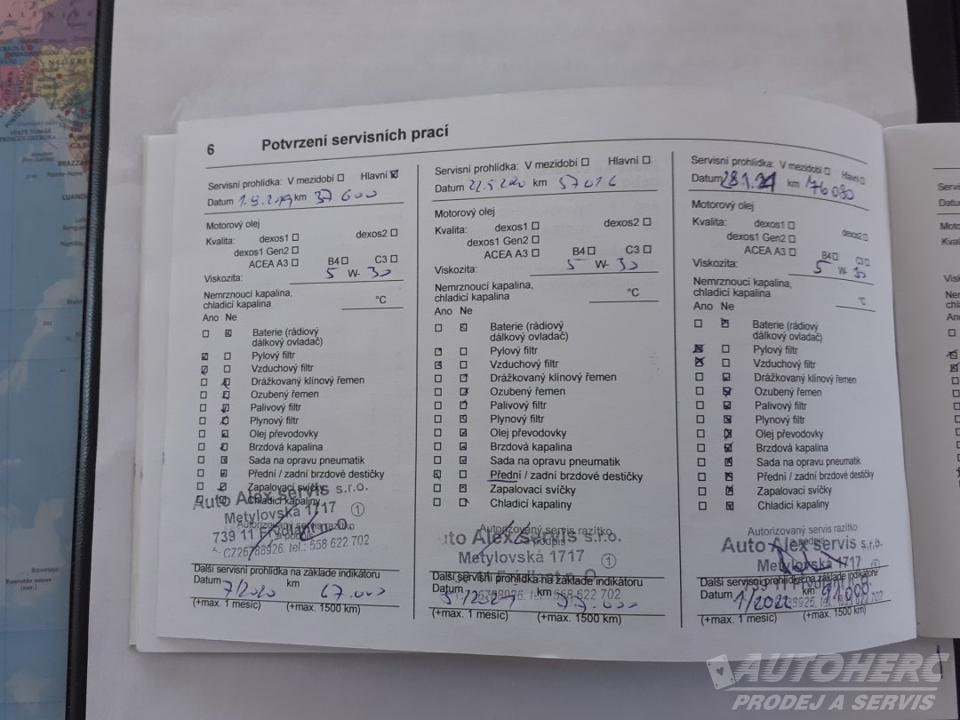 6
Potvrzení servisních prací
Servisní prohlídka: V mezidobí Hlavní
Datum 1.9.2019 km 37 600
Motorový olej
Kvalita: dexos1 dexos2
dexos1 Gen2
ACEA A3 B4 C3
Viskozita: 5 W- 30
Nemrznoucí kapalina,
chladicí kapalina °C
Ano Ne
Baterie (rádiový
dálkový ovladač)
Pylový filtr
Vzduchový filtr
Drážkovaný klínový řemen
Ozubený řemen
Palivový filtr
Plynový filtr
Olej převodovky
Brzdová kapalina
Sada na opravu pneumatik
Přední / zadní brzdové destičky
Zapalovací svíčky
Chladicí kapaliny
Auto Alex servis s.r.o.
Metylovská 1717 1
739 11 Frýdlant n. O.
CZ26788926, tel.: 558 622 702
Další servisní prohlídka na základě indikátoru
Datum 7/2020 km 67.000
(+max. 1 měsíc) (+max. 1500 km)
Servisní prohlídka: V mezidobí Hlavní
Datum 22.5.2020 km 57016
Motorový olej
Kvalita: dexos1 dexos2
dexos1 Gen2
ACEA A3 B4 C3
Viskozita: 5 W- 30
Nemrznoucí kapalina,
chladicí kapalina °C
Ano Ne
Baterie (rádiový
dálkový ovladač)
Pylový filtr
Vzduchový filtr
Drážkovaný klínový řemen
Ozubený řemen
Palivový filtr
Plynový filtr
Olej převodovky
Brzdová kapalina
Sada na opravu pneumatik
Přední / zadní brzdové destičky
Zapalovací svíčky
Chladicí kapaliny
Autorizovaný servis razítko
podpis
Auto Alex servis s.r.o.
Metylovská 1717 1
558 622 702
Další servisní prohlídka na základě indikátoru
Datum 5/2021 km
(+max. 1 měsíc) (+max. 1500 km)
Servisní prohlídka: V mezidobí Hlavní
Datum 28.1.21 km 76 080
Motorový olej
Kvalita: dexos1 dexos2
dexos1 Gen2
ACEA A3 B4 C3
Viskozita: 5 W- 30
Nemrznoucí kapalina,
chladicí kapalina °C
Ano Ne
Baterie (rádiový
dálkový ovladač)
Pylový filtr
Vzduchový filtr
Drážkovaný klínový řemen
Ozubený řemen
Palivový filtr
Plynový filtr
Olej převodovky
Brzdová kapalina
Sada na opravu pneumatik
Přední / zadní brzdové destičky
Zapalovací svíčky
Chladicí kapaliny
Autorizovaný servis razítko
podpis
Auto Alex servis s.r.o.
Metylovská 1717 1
Další servisní prohlídka na základě indikátoru
Datum 1/2022 km 91000
(+max. 1 měsíc) (+max. 1500 km)
AUTOHERC
PRODEJ A SERVIS